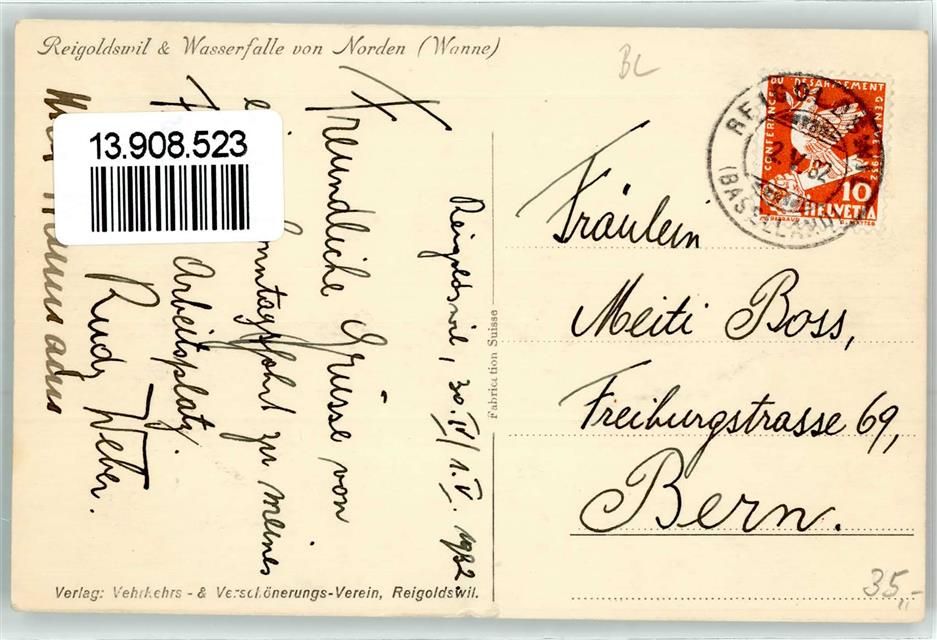 Reigoldswil & Wasserfalle von Norden (Wanne)
BL
13.908.523
Reigoldswil, 30.IV/1.V. 1932.
Freundliche Grüsse von
meines
Arbeitsplatz
Rudy Weber.
Fabrication Suisse
CONFERENCE DU DESARMEMENT GENEVE 1932
10
HELVETIA
REIGOLDSWIL
2.V.32
(BASELLAND)
Fräulein
Meiti Boss,
Freiburgstrasse 69,
Bern.
35,-
Verlag: Verkehrs- & Verschönerungs-Verein, Reigoldswil.